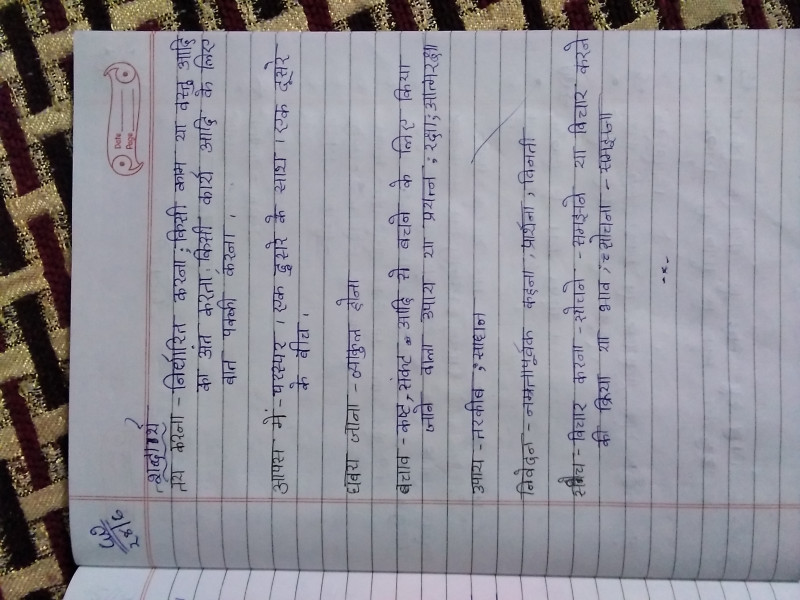 Date
Page
शब्दार्थ
तय करना - निर्धारित करना ; किसी काम या वस्तु आदि
का अंत करता ; किसी कार्य आदि के लिए
बात पक्की करना ।
आपस में - परस्पर । एक दुसरे के साथ । एक दूसरे
के बीच ।
घबरा जाना - व्याकुल होना
बचाव - कष्ट, संकट आदि से बचने के लिए किया
जाने वाला उपाय या प्रयत्न ; रक्षा ; आत्मरक्षा
उपाय - तरकीब ; साधन
निवेदन - नम्रतापूर्वक कहना ; प्रार्थना ; विनती
विचार करना - सोचने - समझने या विचार करने
की क्रिया या भाव ; सोचना - समझना